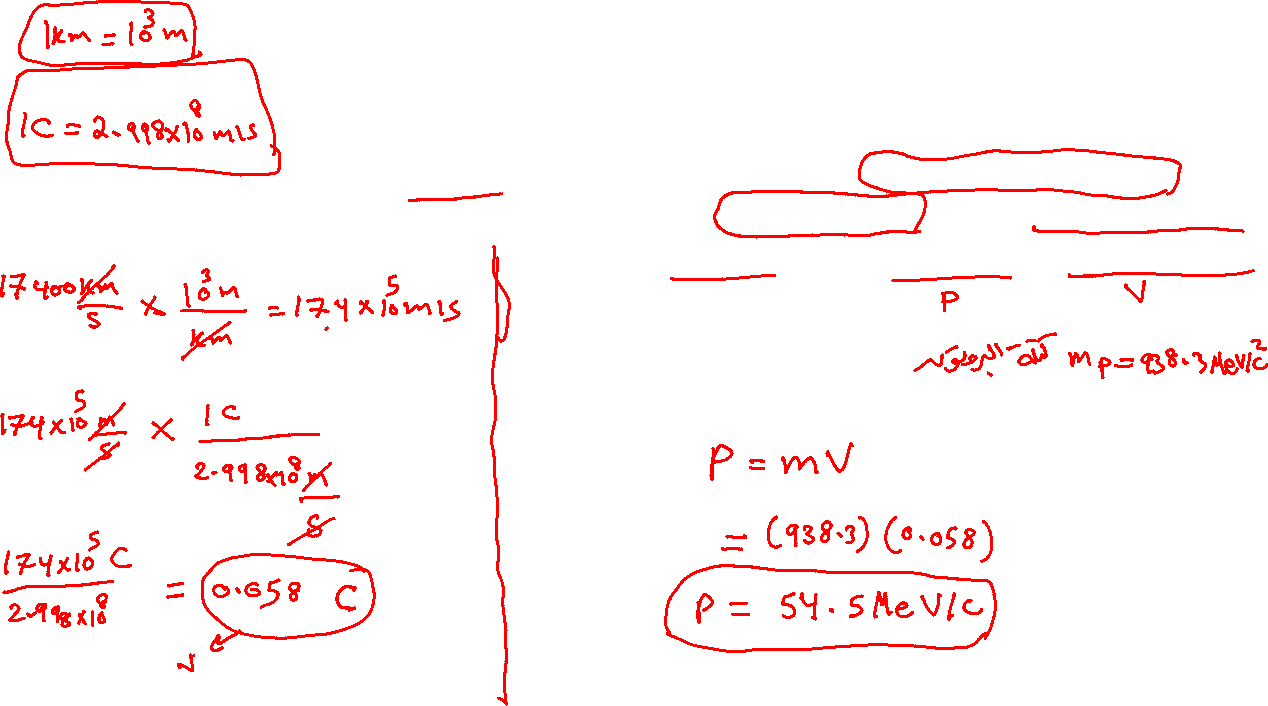 1km = 10³ m
1C = 2.998×10⁸ m/s
17400 km/s × 10³ m/km = 174 × 10⁵ m/s
174×10⁵ m/s × 1C / 2.998×10⁸ m/s
174×10⁵ C / 2.998×10⁸ = 0.058 C
v
P V
كتلة البروتون m p = 938.3 MeV/c²
P = mV
= (938.3) (0.058)
P = 54.5 MeV/c